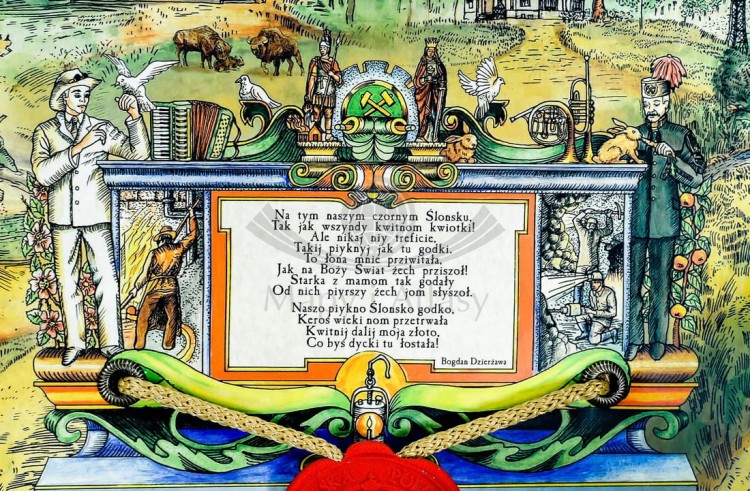 Na tym naszym czornym Ślonsku,
Tak jak wszyndy kwitnom kwiotki!
Ale nikaj niy treficie,
Takij piyknyj jak tu godki.
To łona mnie prziwitała,
Jak na Boży Świat żech prziszoł!
Starka z mamom tak godały
Od nich pyrszy żech jom słyszoł.
Naszo piykno Ślonsko godko,
Keroś wicki nom przetrwała
Kwitnij dalij moja złoto,
Co byś dycki tu łostała!
Bogdan Dzierżawa